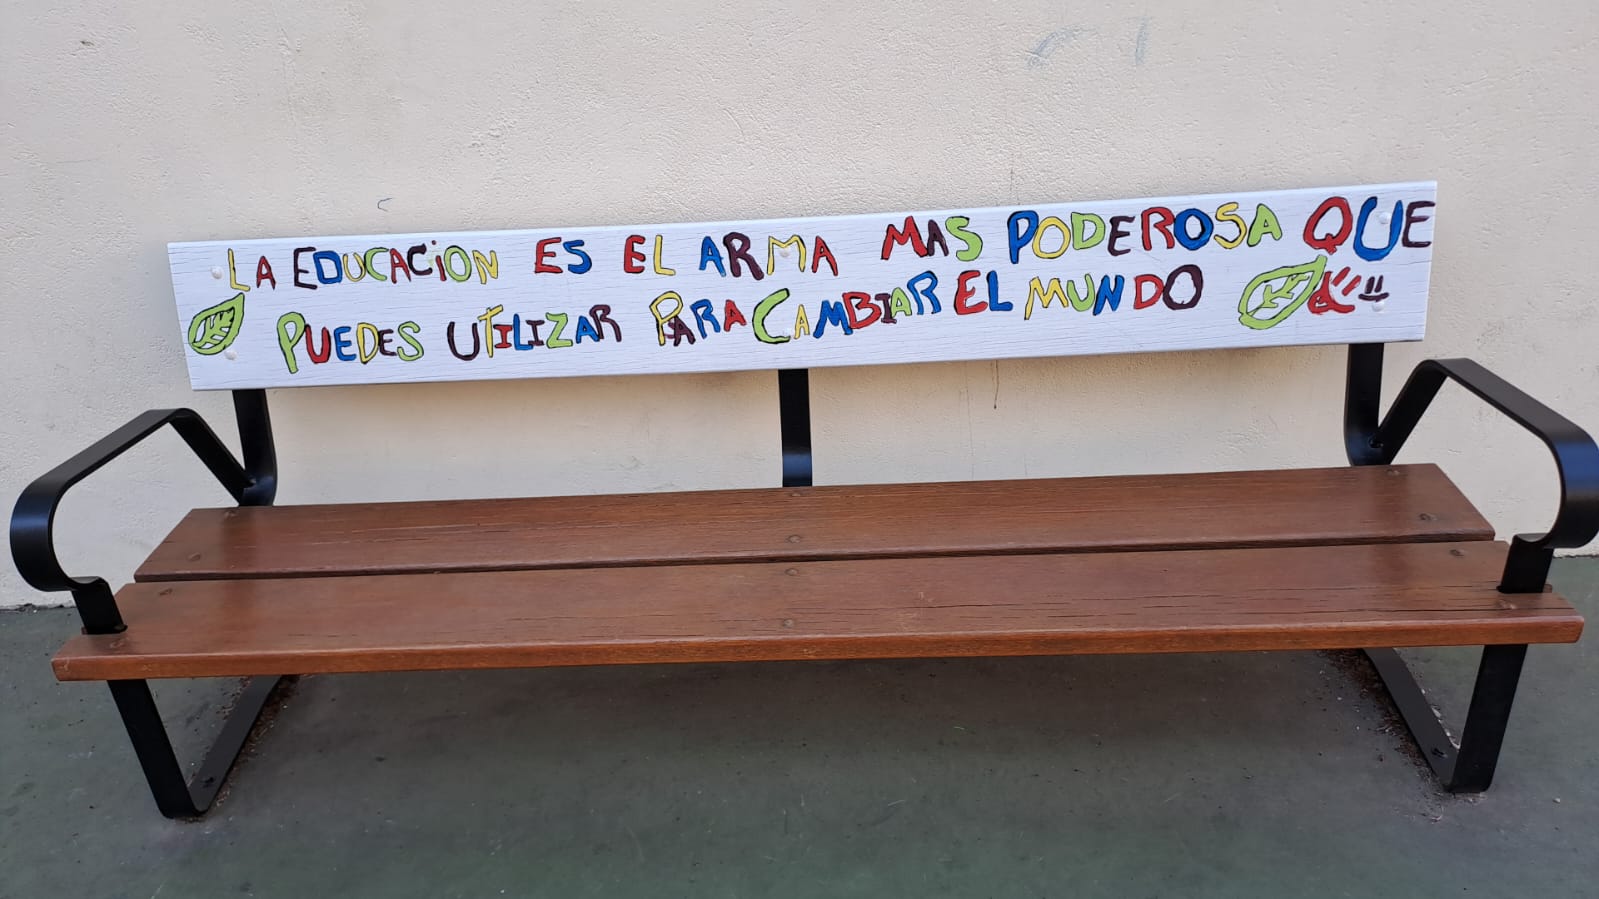 LA EDUCACiON ES EL ARMA MAS PODEROSA QUE
PUEDES UTILIZAR PARA CAMBIAR EL MUNDO